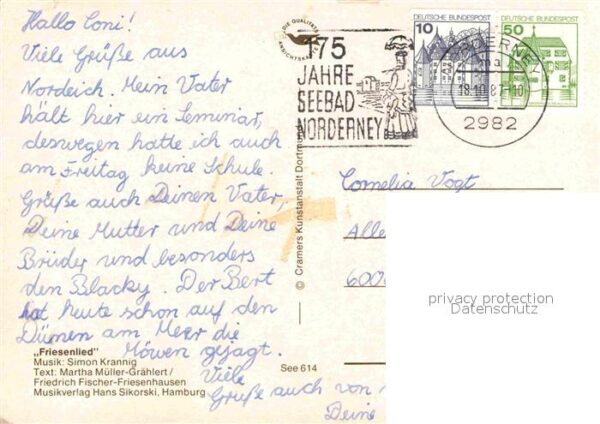 Hallo Coni!
Viele Grüße aus
Nordeich. Mein Vater
hält hier ein Seminar,
deswegen hatte ich auch
am Freitag keine Schule.
Grüße auch Deinen Vater,
Deine Mutter und Deine
Brüder und besonders
den Blacky. Der Bert
hat heute schon auf den
Dünen am Meer die
Möwen gejagt.
Viele
Grüße auch von
Deine
„Friesenlied"
Musik: Simon Krannig
Text: Martha Müller-Grählert /
Friedrich Fischer-Friesenhausen
Musikverlag Hans Sikorski, Hamburg
See 614
© Cramers Kunstanstalt Dortmund
DIE QUALITÄTS
ANSICHTSKARTE
175
JAHRE
SEEBAD
NORDERNEY
10
DEUTSCHE BUNDESPOST
50
DEUTSCHE BUNDESPOST
NORDERNEY
18.10.87-10
2982
Cornelia Vogt
Alle
600
privacy protection
Datenschutz